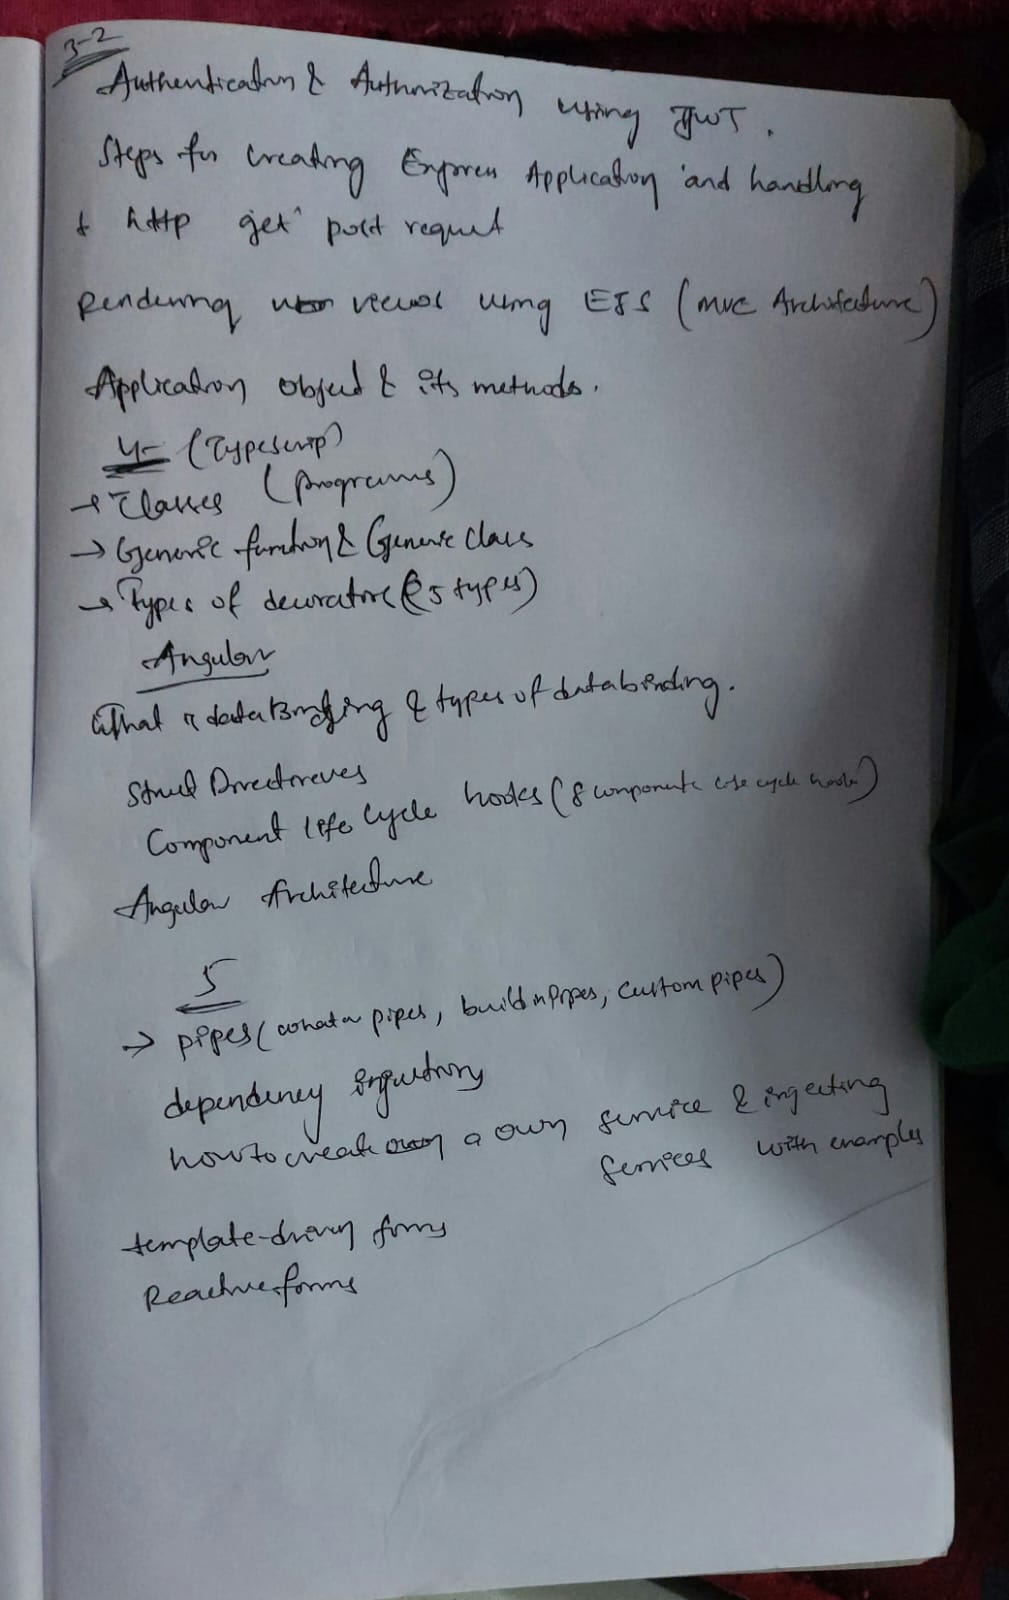 3-2
Authentication & Authorization using JWT.
Steps for creating Express Application and handling
http get post request
Rendering views using EJS (MVC Architecture)
Application object & its methods.
4- (Typescrip)
→ Classes (programs)
→ Generic function & Generic class
→ Types of decorators (5 types)
Angular
What is data Binding & types of databinding.
Struct Directives
Component life cycle hooks (8 components life cycle hooks)
Angular Architecture
5
→ pipes (what a pipes, build in pipes, custom pipes)
dependency injection
how to create a own service & injecting
services with examples
template-driven forms
Reactive forms